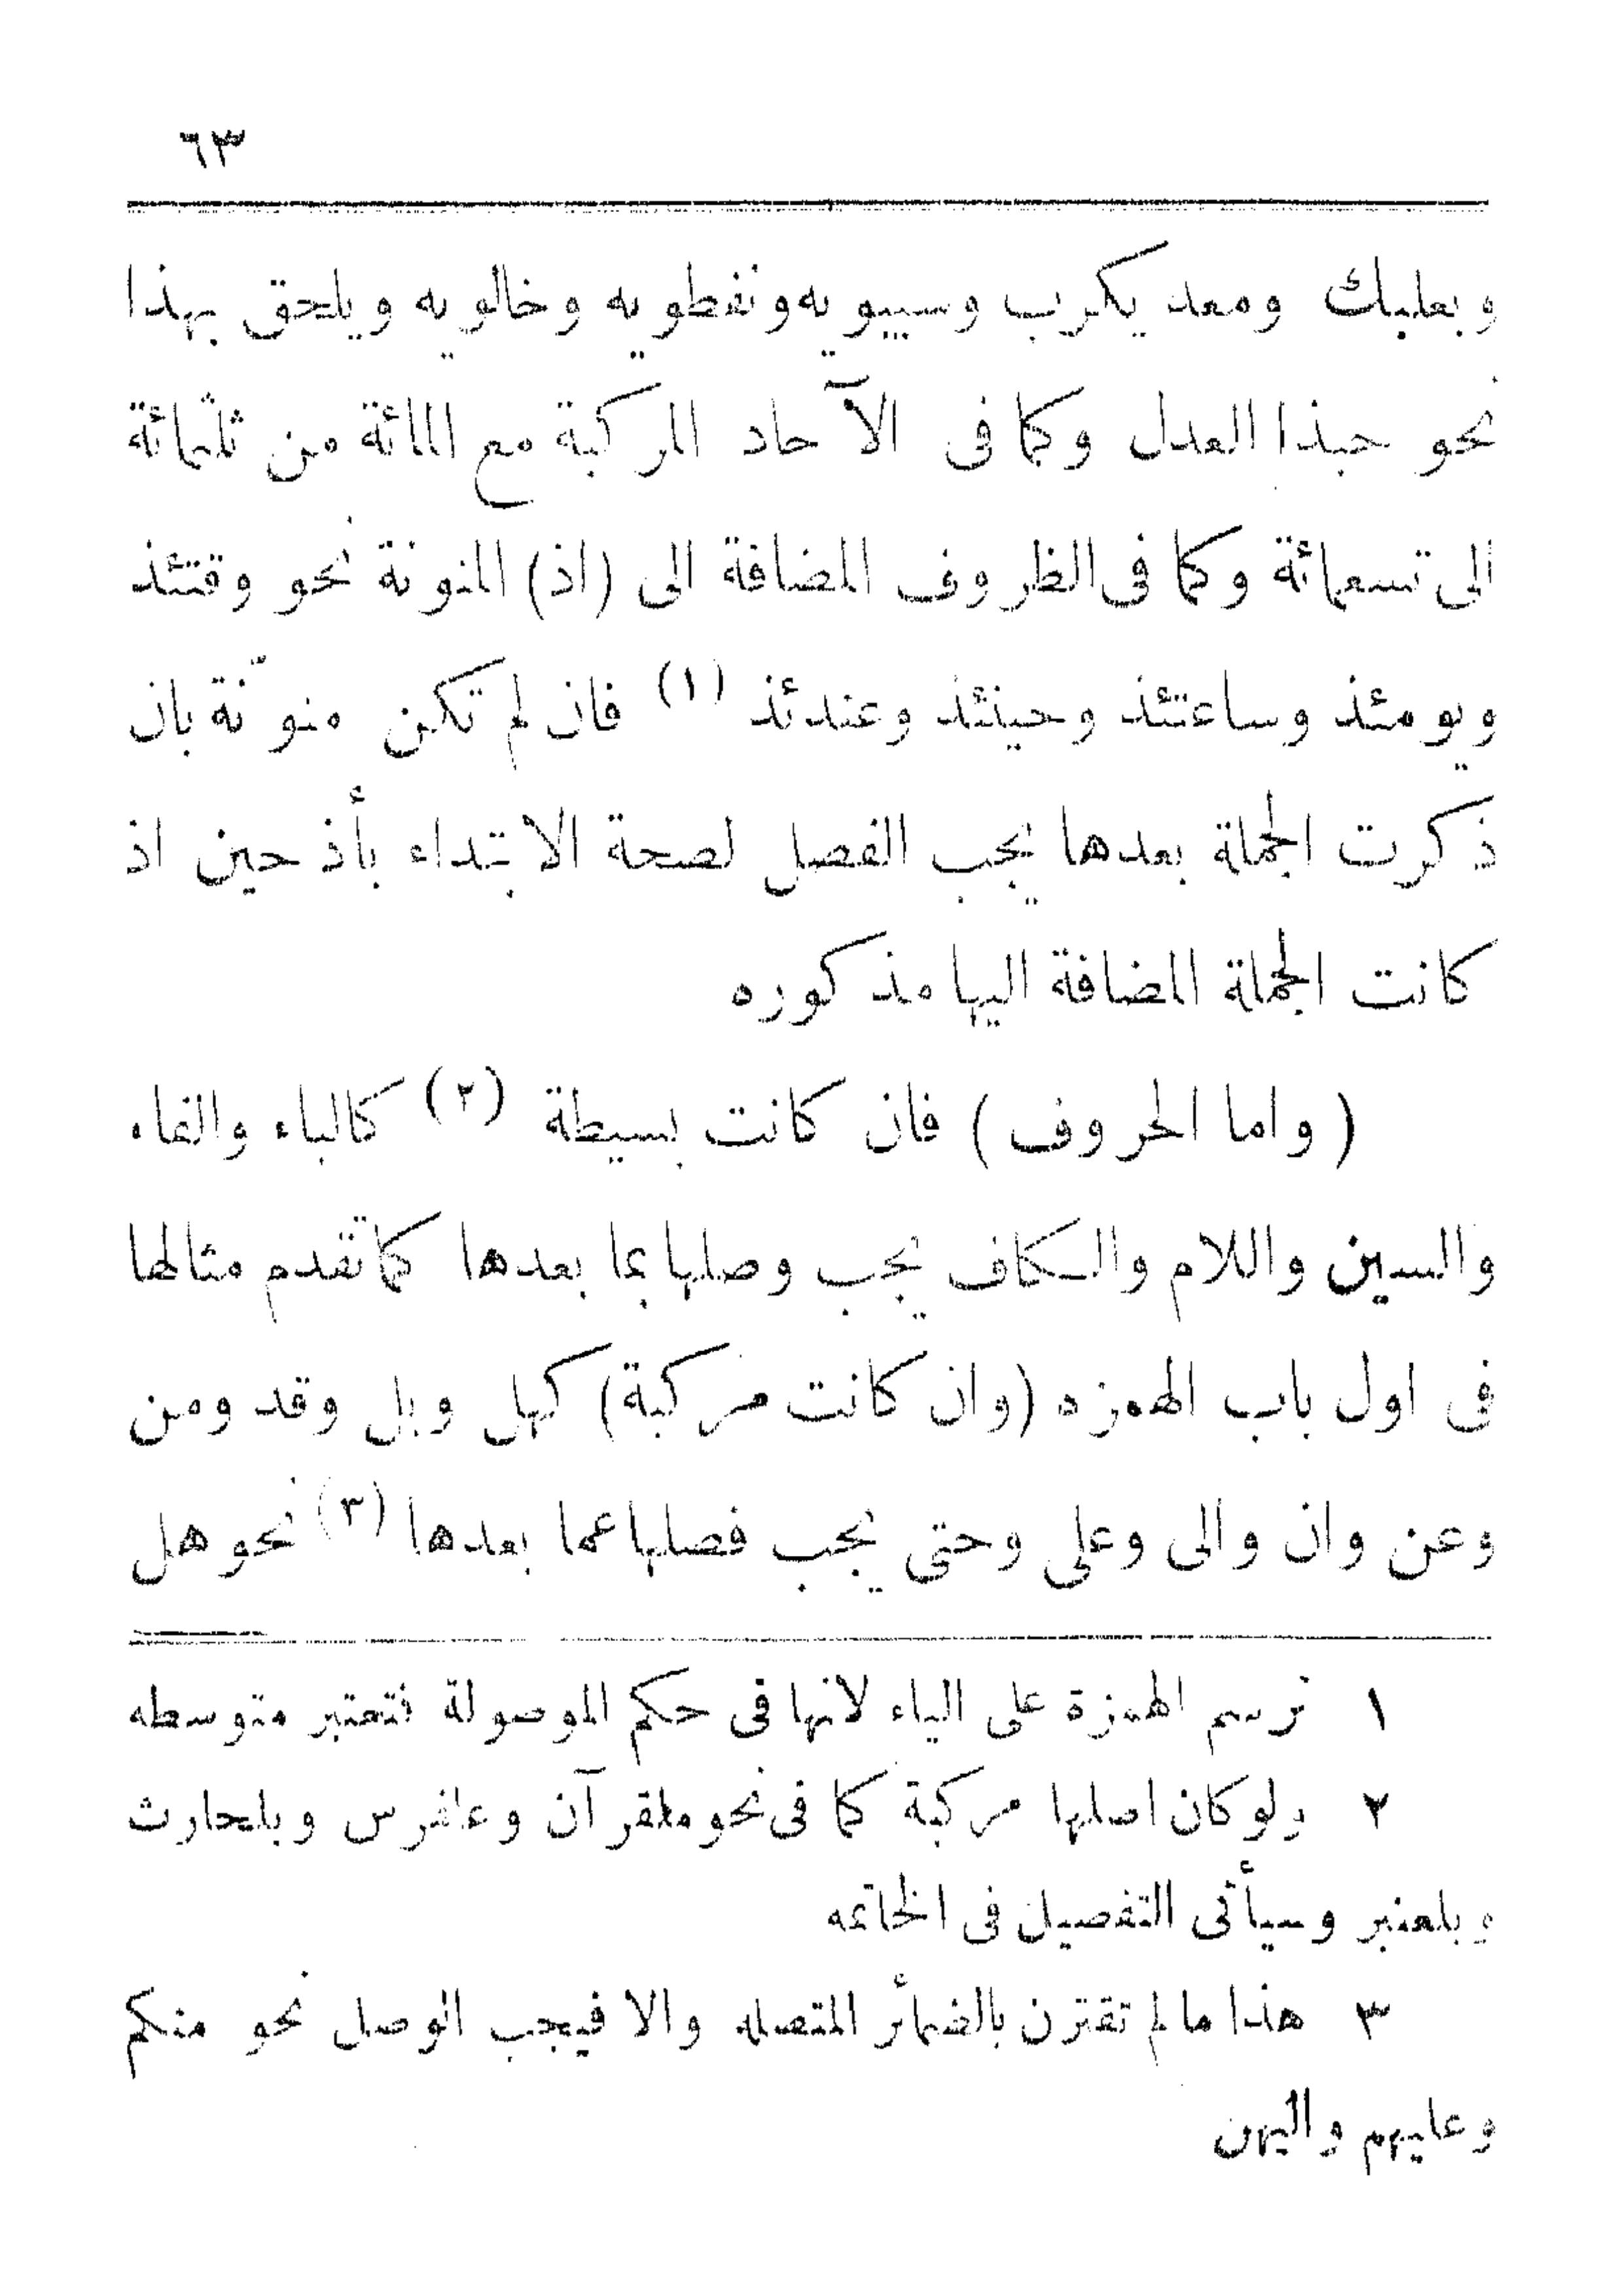 ٦٣
وبعلبك ومعد يكرب وسيبويه ونفطويه وخالويه ويلحق بهذا
نحو حبذا العدل وكما فى الآحاد المركبة مع المائة من ثلثمائة
الى تسعمائة وكما فى الظروف المضافة الى (اذ) المنونة نحو وقتئذ
ويومئذ وساعتئذ وحينئذ وعندئذ (١) فان لم تكن منوّنة بان
ذكرت الجملة بعدها يجب الفصل لصحة الابتداء بأذ حين اذ
كانت الجملة المضافة اليها مذكوره
( واما الحروف ) فان كانت بسيطة (٢) كالباء والفاء
والسين واللام والكاف يجب وصلها بما بعدها كما تقدم مثالها
فى اول باب الهمزه (وان كانت مركبة) كهل وبل وقد ومن
وعن وان والى وعلى وحتى يجب فصلها عما بعدها (٣) نحو هل
١ ترسم الهمزة على الياء لانها فى حكم الموصولة فتعتبر متوسطه
٢ ولو كان اصلها مركبة كما فى نحو ملقرآن وعافرس وبلحارث
وبلعنبر وسيأتى التفصيل فى الخاتمه
٣ هذا ما لم تقترن بالضمائر المتصله والا فيجب الوصل نحو منكم
وعليهم واليهن